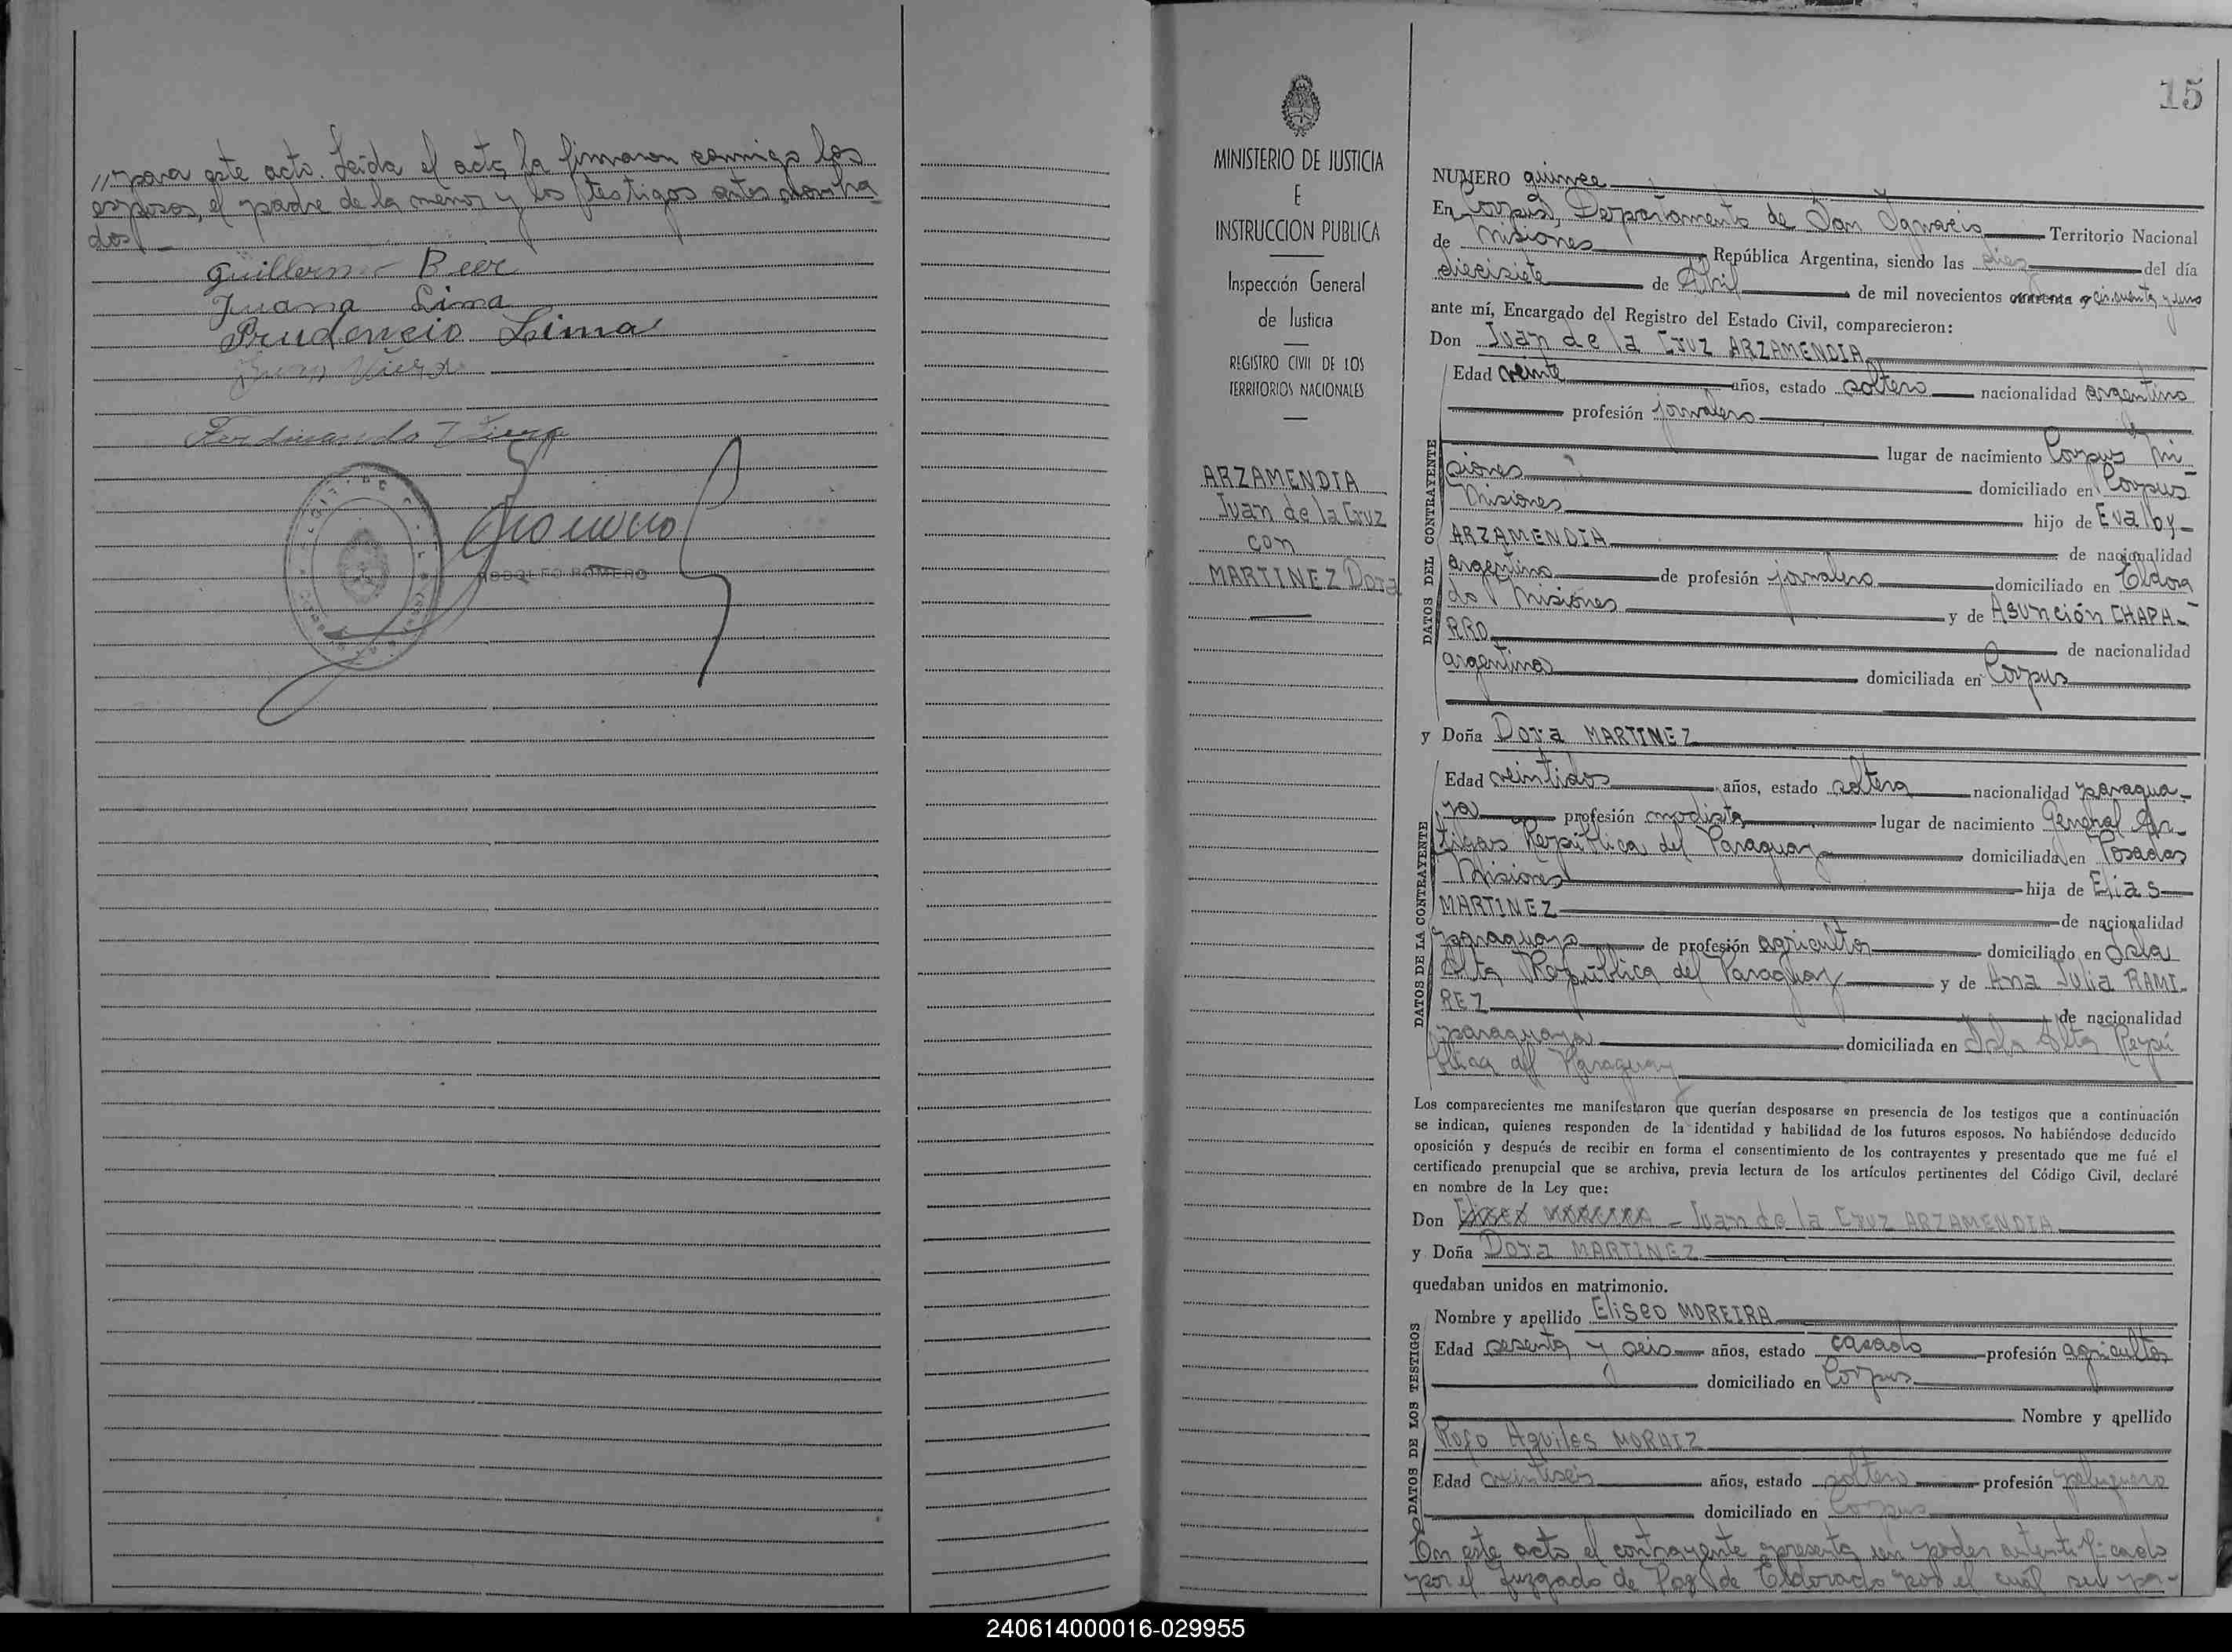 // para este acto. Leida el acta, la firmaron conmigo los
esposos, el padre de la menor y los testigos antes nombra-
dos
Guillermo Beer
Juana Lima
Prudencio Lima
Viera
RODOLFO ROMERO
MINISTERIO DE JUSTICIA
E
INSTRUCCION PUBLICA
Inspección General
de Justicia
REGISTRO CIVIL DE LOS
TERRITORIOS NACIONALES
ARZAMENDIA
Juan de la Cruz
con
MARTINEZ Dora
15
NUMERO quince
En Corpus, Departamento de San Ignacio Territorio Nacional
de Misiones República Argentina, siendo las diez del día
diecisiete de Abril de mil novecientos cuarenta y cincuenta y uno
ante mí, Encargado del Registro del Estado Civil, comparecieron:
Don Juan de la Cruz ARZAMENDIA
DATOS DEL CONTRAYENTE
Edad veinte años, estado soltero nacionalidad argentino
profesión jornalero
lugar de nacimiento Corpus Mi-
siones domiciliado en Corpus
Misiones hijo de Evalby-
ARZAMENDIA de nacionalidad
argentino de profesión jornalero domiciliado en Eldora
do Misiones y de Asunción CHAPA-
RRO de nacionalidad
argentina domiciliada en Corpus
y Doña Dora MARTINEZ
DATOS DE LA CONTRAYENTE
Edad veintidos años, estado soltera nacionalidad paragua-
ya profesión modista lugar de nacimiento General Ar-
tigas República del Paraguay domiciliada en Posadas
Misiones hija de Elias
MARTINEZ de nacionalidad
paraguayo de profesión agricultor domiciliado en Isla
Alta República del Paraguay y de Ana Julia RAMI-
REZ de nacionalidad
paraguaya domiciliada en Isla Alta Repú
blica del Paraguay
Los comparecientes me manifestaron que querían desposarse en presencia de los testigos que a continuación
se indican, quienes responden de la identidad y habilidad de los futuros esposos. No habiéndose deducido
oposición y después de recibir en forma el consentimiento de los contrayentes y presentado que me fué el
certificado prenupcial que se archiva, previa lectura de los artículos pertinentes del Código Civil, declaré
en nombre de la Ley que:
Don Juan de la Cruz ARZAMENDIA
y Doña Dora MARTINEZ
quedaban unidos en matrimonio.
DATOS DE LOS TESTIGOS
Nombre y apellido Eliseo MOREIRA
Edad sesenta y seis años, estado casado profesión agricultor
domiciliado en Corpus
Nombre y apellido
Rufo Aquiles MORAIZ
Edad veintiseis años, estado soltero profesión peluquero
domiciliado en Corpus
En este acto el contrayente presenta un poder autentificado
por el Juzgado de Paz de Eldorado por el cual su pa-
240614000016-029955